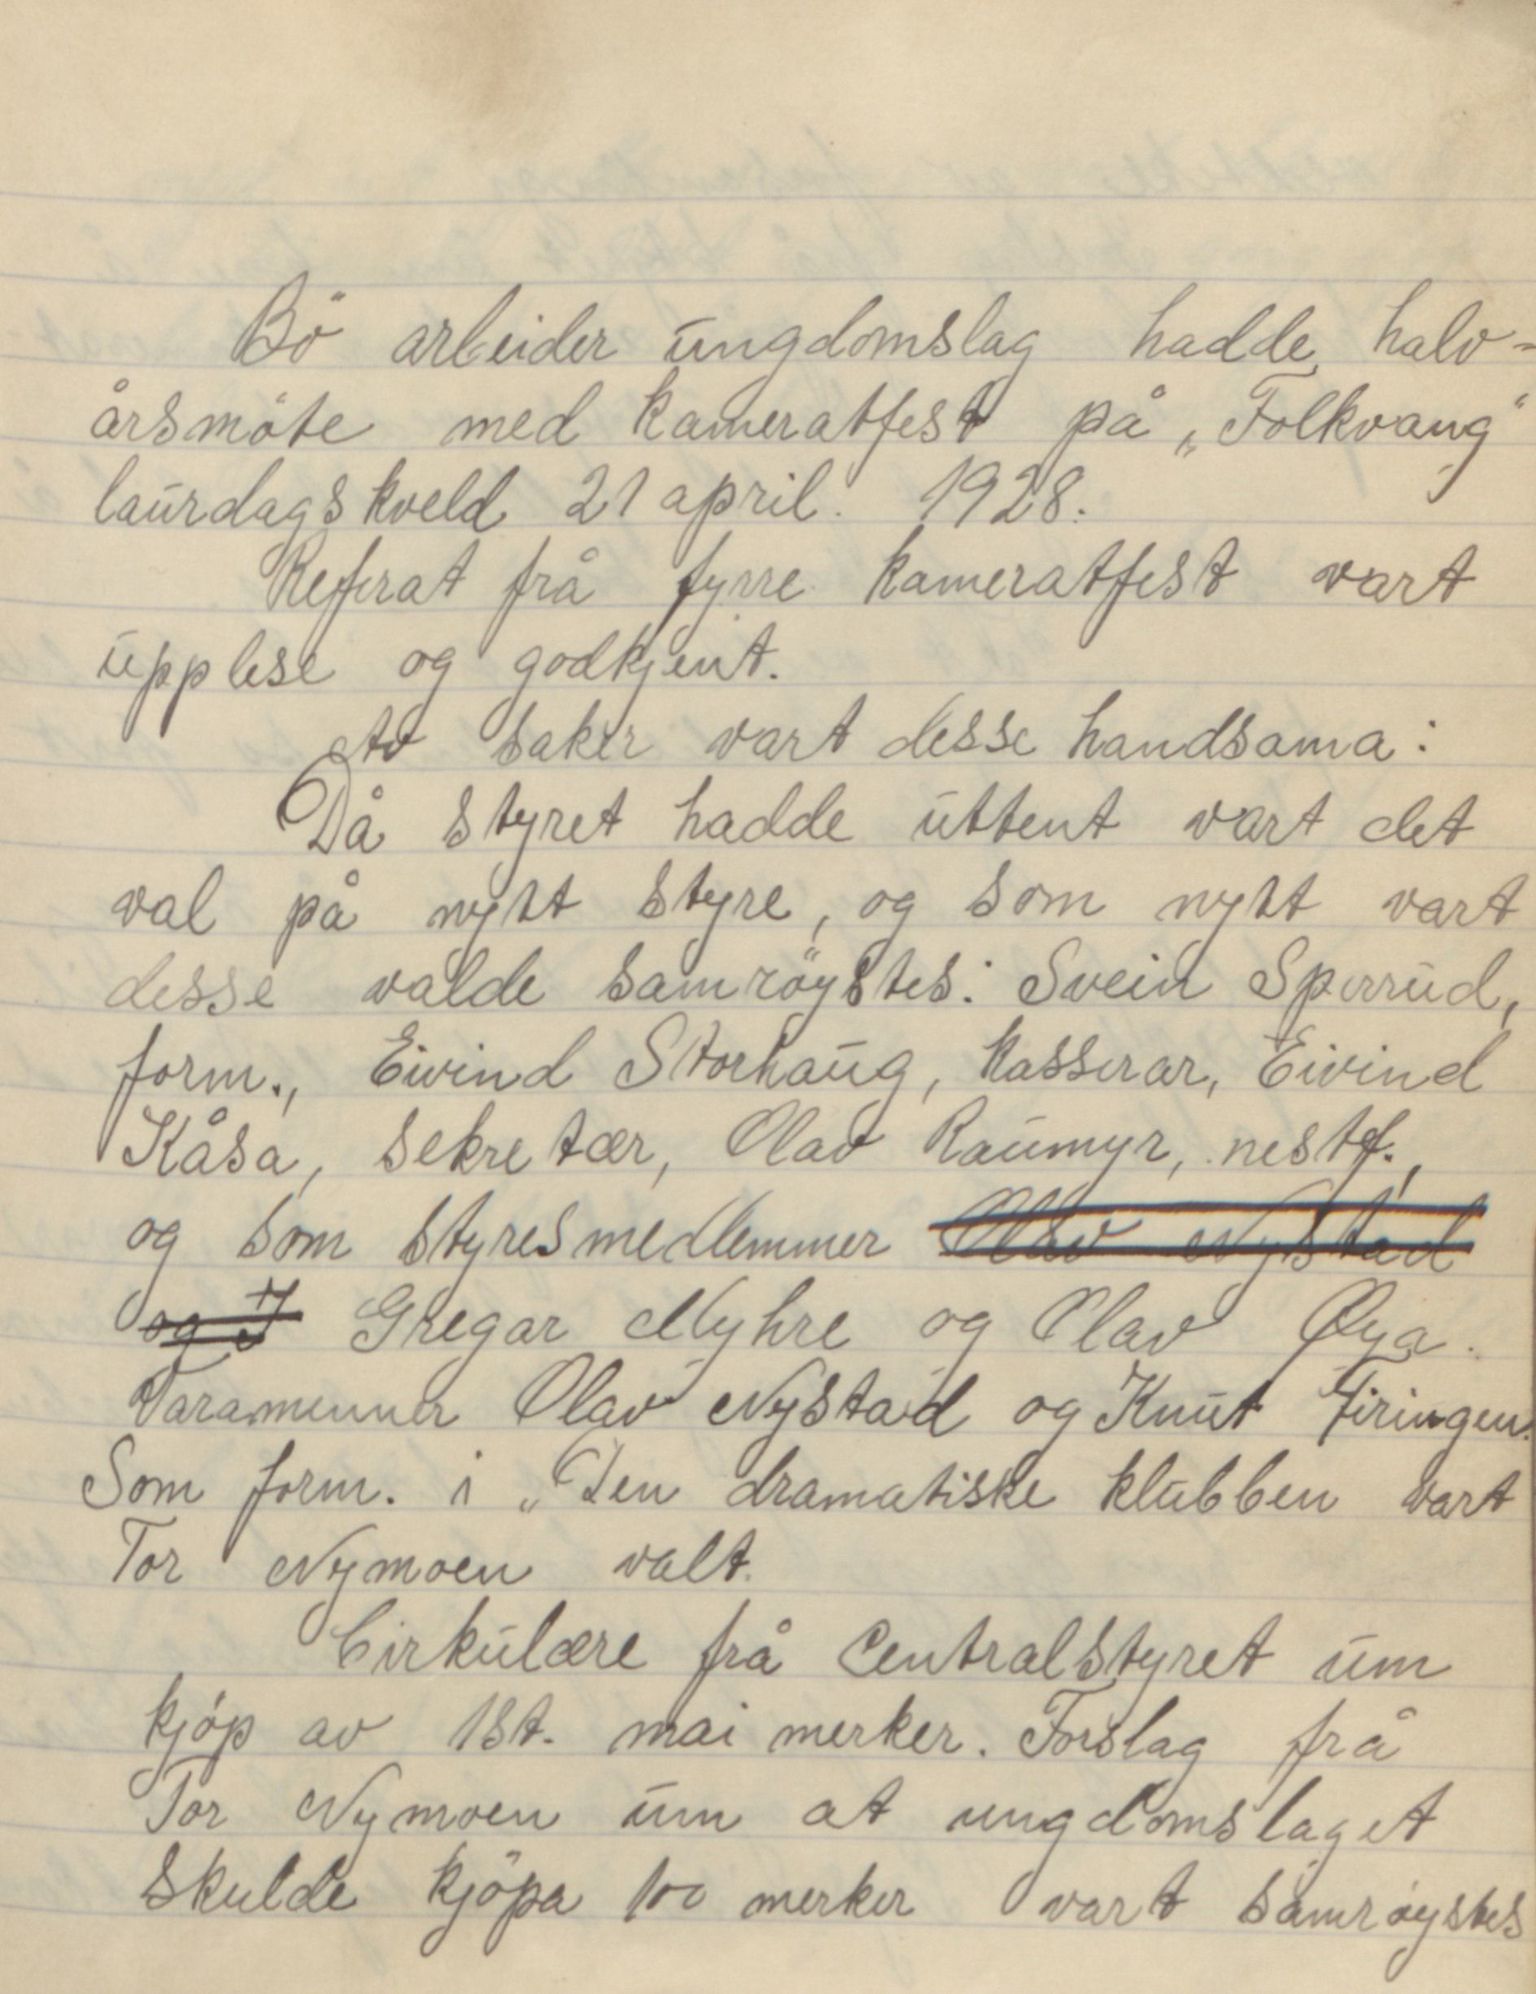 Bö arbeider ungdomslag hadde halv-
årsmöte med kameratfest på „Folkvang"
laurdagskveld 21 april. 1928.
Referat frå fyrre kameratfest vart
upplese og godkjent.
Av saker vart desse handsama:
Då styret hadde uttent vart det
val på nytt styre, og som nytt vart
desse valde samröystes: Svein Sperrud,
form., Eivind Storhaug, kasserar, Eivind
Kåsa, sekretær, Olav Raumyr, nestf.,
og som styresmedlemmer Olav Nystad
og J Gregar Nyhre og Olav Øya.
Varamenner Olav Nystad og Knut Firingen.
Som form. i „Den dramatiske klubben vart
Tor Nymoen valt.
Cirkulære frå Centralstyret um
kjöp av 1st. mai merker. Forslag frå
Tor Nymoen um at ungdomslaget
skulde kjöpa 100 merker vart samröystes